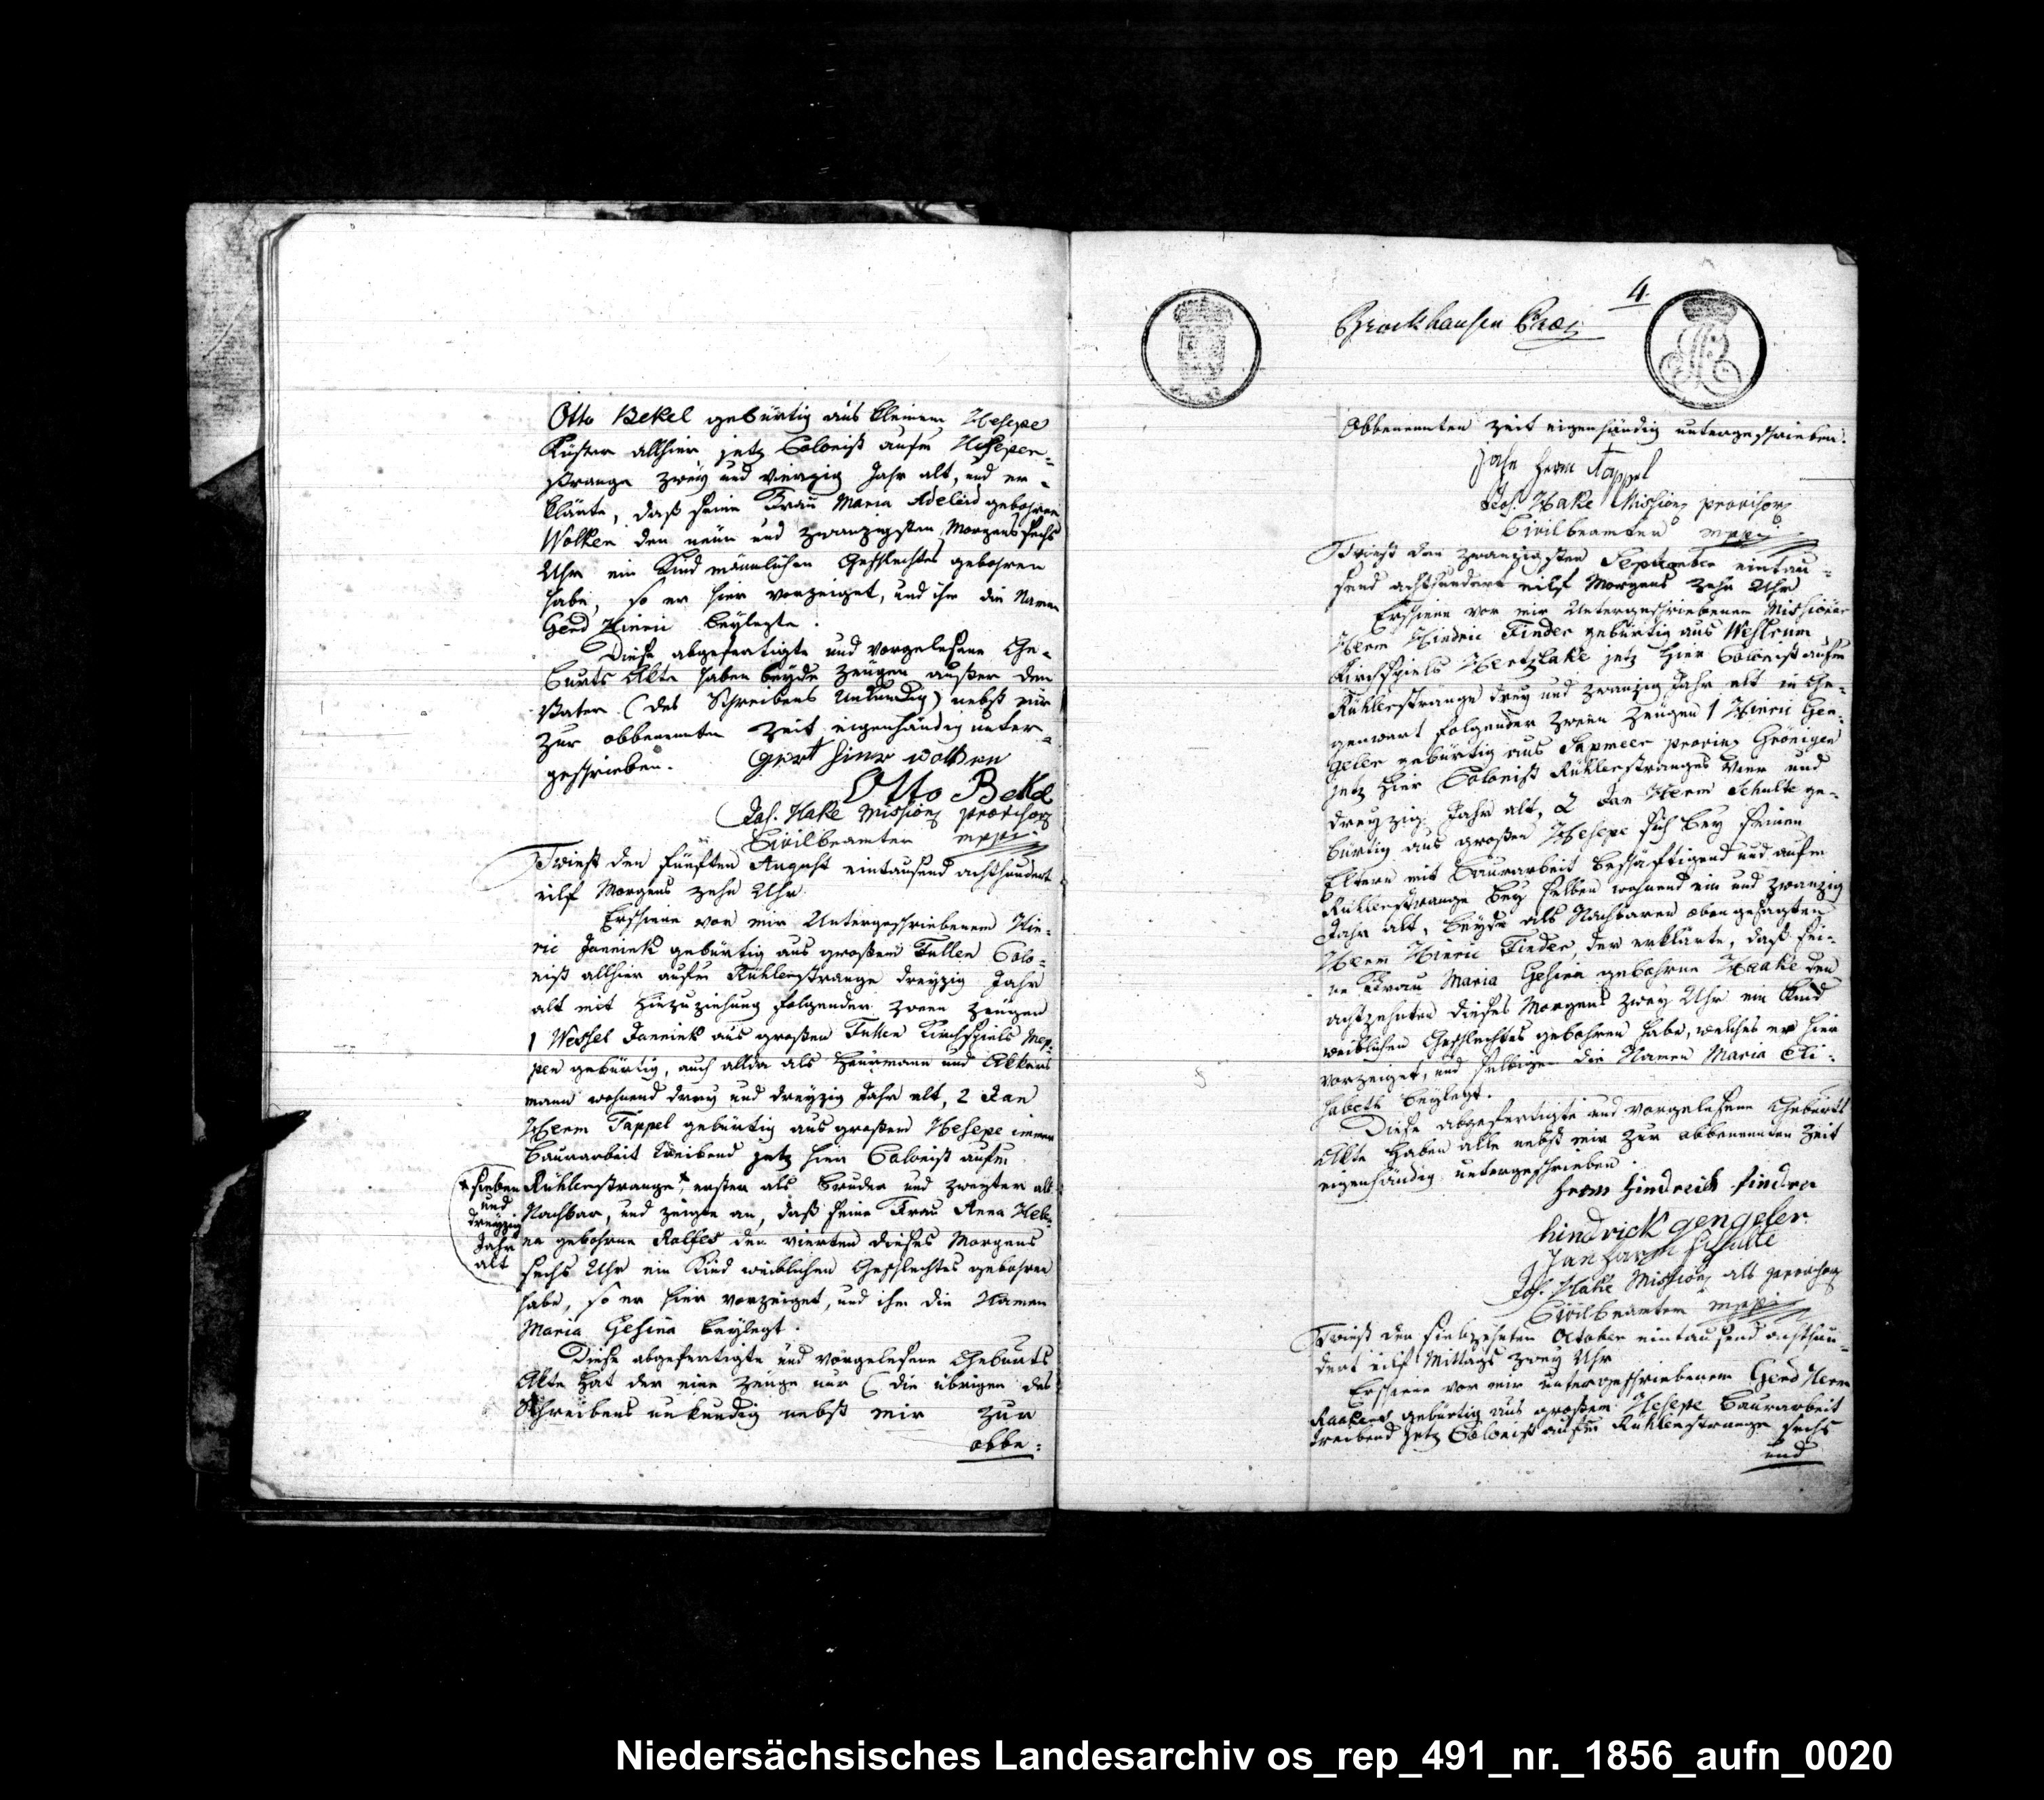 Otto Bekel gebürtig aus kleinem Hesepe
Küster allhier jetz Colonist aufm Hesepen=
strange zwey und vierzig Jahr alt, und er=
klärte, daß seine Frau Maria Adeleid gebohrne
Wolken den neün und zwanzigsten Morgens sechs
Uhr ein Kind männlichen Geschlechtes gebohren
habe, so er hier vorzeiget, und ihm die Namen
Gerd Hinric beylegte.
Diese abgefertigte und vorgelesene Ge=
burts Akte haben beyde Zeugen außer dem
Vater (des Schreibens Unkundig) nebst mir
zur obbenennten Zeit eigenhändig unter=
geschrieben. gert hinr wolken
Otto Bekel
Joh. Hake Mission provisor
Civilbeamter mppr
Twist den fünften August eintausend achthundert
eilf Morgens zehn Uhr
Erschiene vor mir Untergeschriebenem Hin=
ric Jannink gebürtig aus großem Fullen Colo=
nist allhier aufm Rühlerstrange dreyzig Jahr
alt mit Hinzuziehung folgender zween Zeugen
1 Wessel Jannink aus großen Fullen Kirchspiels Mep=
pen gebürtig, auch allda als Heürmann und Akkers
mann wohnend drey und dreyzig Jahr alt, 2 Jan
Herm Tappel gebürtig aus großem Hesepe immer
Baurarbeit treibend jetz hier Colonist aufm
* sieben
und
dreyzig
Jahr
alt
Rühlerstrange*, erster als Bruder und zweyter als
Nachbar, und zeigte an, daß seine Frau Anna Hele=
na gebohrne Rolfes den vierten dieses Morgens
sechs Uhr ein Kind weiblichen Geschlechtes gebohren
habe, so er hier vorzeiget, und ihm die Namen
Maria Gesina beylegt.
Diese abgefertigte und vorgelesene Geburts
Akte hat der eine Zeuge nur (die übrigen des
Schreibens unkundig nebst mir zur
obbe=
4.
Brockhausen
obbenennten Zeit eigenhändig untergeschrieben.
jahn herm Tappel
Joh. Hake Mission provisor
Civilbeamter mppr
Twist den zwanzigsten September eintau=
send achthundert eilf Morgens zehn Uhr
Erschiene vor mir Untergeschriebenem Missionar
Herm Hindric Finder gebürtig aus Wehlrum
Kirchspiels Hertzlake jetz hier Colonist aufm
Rühlerstrange drey und zwanzig Jahr alt in Ge=
genwart folgender zween Zeugen 1 Hinric Gen=
geler gebürtig aus Sapmeer provinz Grönigen
jetz hier Colonist Rühlerstranges vier und
dreyzig Jahr alt, 2 Jan Herm Schulte ge=
bürtig aus großen Hesepe sich bey seinen
Eltern mit Baurarbeit beschäftigend und aufm
Rühlerstrange bey selben wohnend ein und zwanzig
Jahr alt, beyde als Nachbaren obengesagten
Herm Hinric Finder, der erklärte, daß sei=
ne Frau Maria Gesina gebohrne Haake den
achtzehnten dieses Morgens zwey Uhr ein Kind
weiblichen Geschlechtes gebohren habe, welches er hier
vorzeiget, und selbigem die Namen Maria Eli=
sabeth beylegt.
Diese abgefertigte und vorgelesene Geburts
Akte haben alle nebst mir zur obbenennten Zeit
eigenhändig untergeschrieben.
herm hindreich finder
hindrick gengeler
Jan harm schulte
Joh. Hake Mission als provisor
Civilbeamter mppr
Twist den siebzehnten October eintausend achthun=
dert eilf Mittags zwey Uhr
Erschiene vor mir untergeschriebenem Gerd Herm
gebürtig aus großem Hesepe Baurarbeit
treibend jetz Colonist aufm Rühlerstrange sechs
und
Niedersächsisches Landesarchiv os_rep_491_nr._1856_aufn_0020